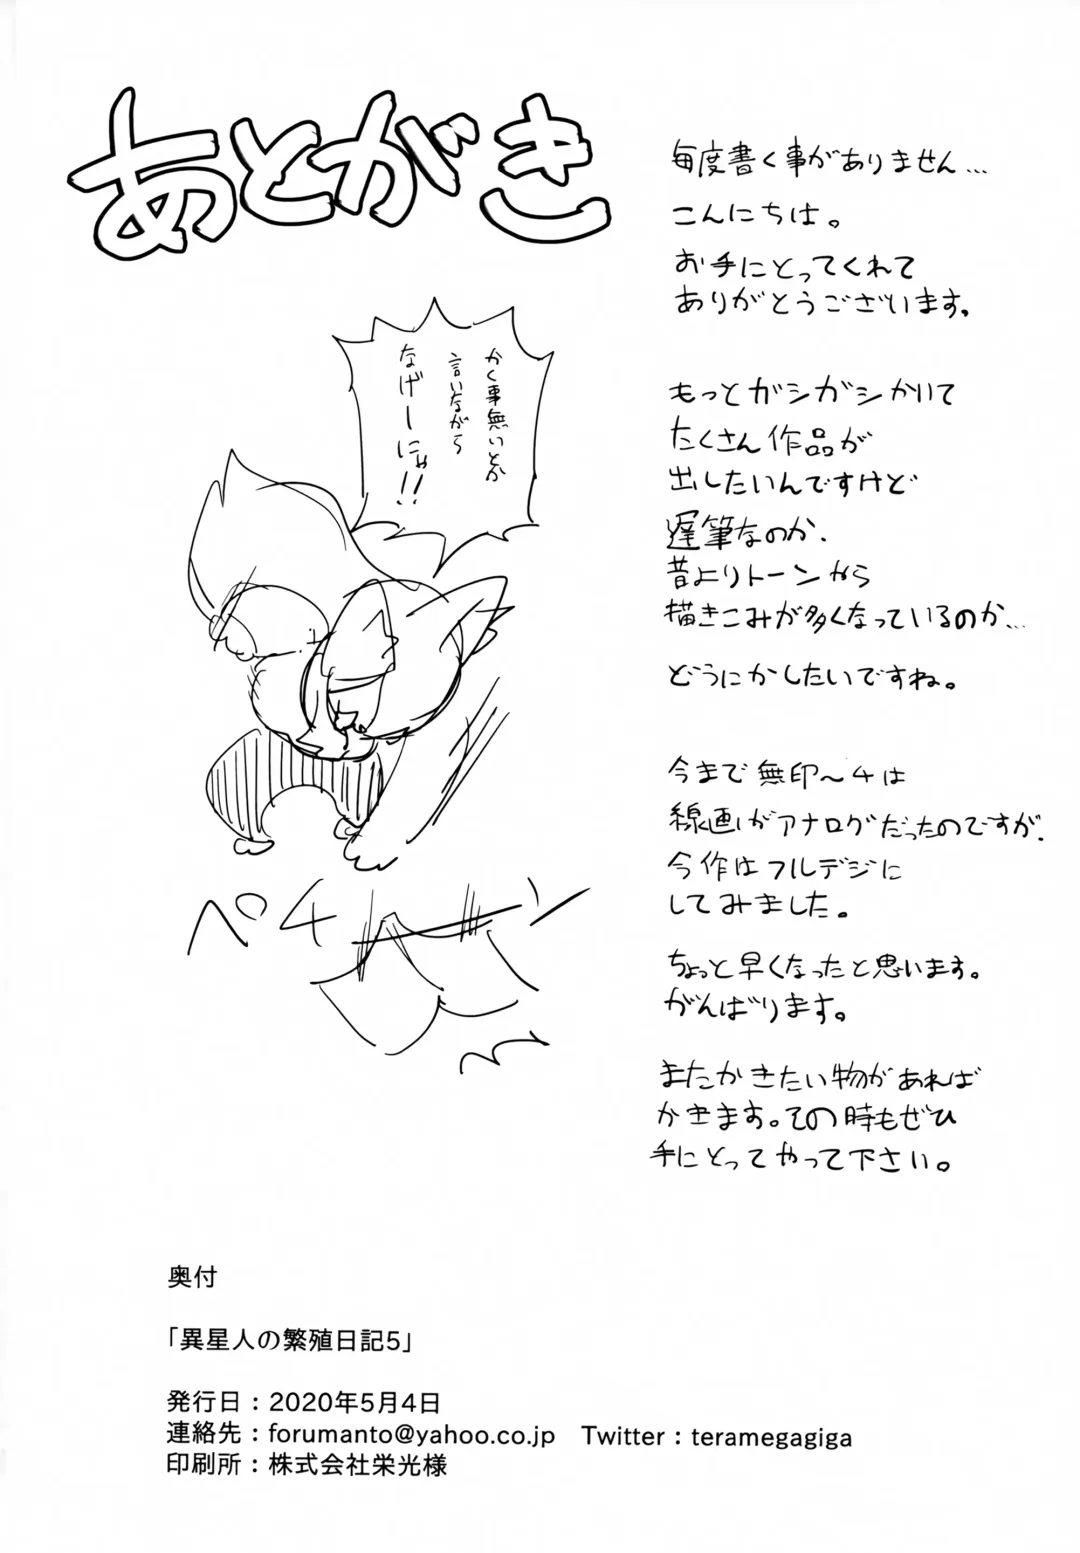 あとがき
毎度書く事がありません…
こんにちは。
お手にとってくれて
ありがとうございます。
もっとガシガシかいて
たくさん作品が
出したいんですけど
遅筆なのか、
昔よりトーンから
描きこみが多くなっているのか…
どうにかしたいですね。
今まで無印～4は
線画がアナログだったのですが、
今作はフルデジに
してみました。
ちょっと早くなったと思います。
がんばります。
またかきたい物があれば
かきます。その時もぜひ
手にとってやって下さい。
かく事無いとか
言いながら
なげーにゃ!!
ペチーン
奥付
「異星人の繁殖日記5」
発行日：2020年5月4日
連絡先：forumanto@yahoo.co.jp Twitter：teramegagiga
印刷所：株式会社栄光様